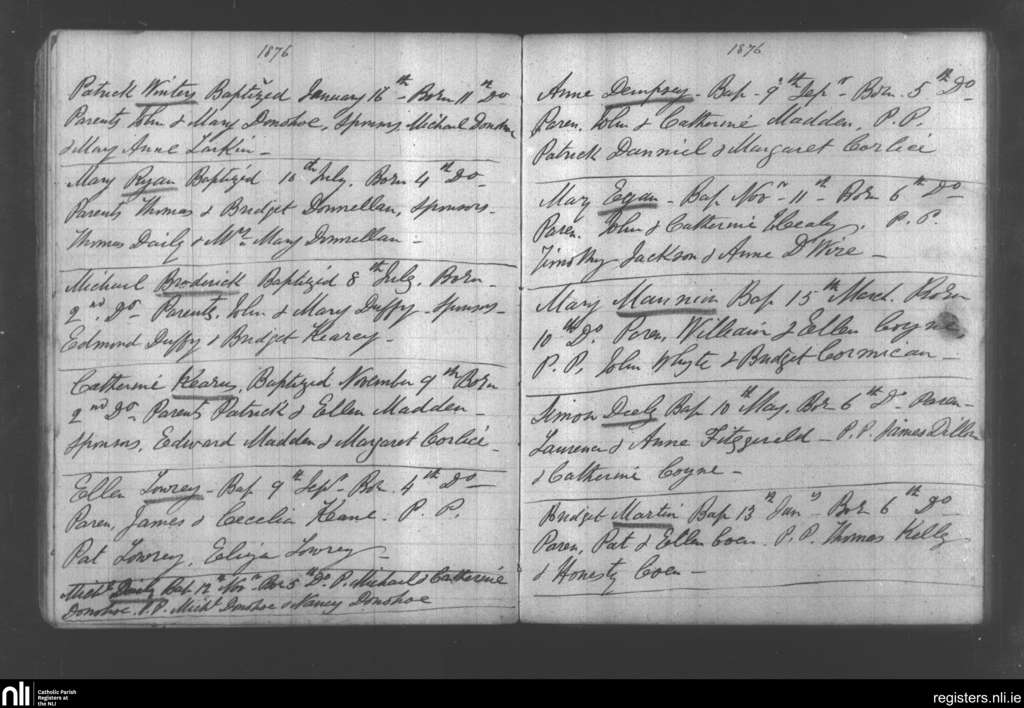 1876
Patrick Winters Baptized January 16th - Born 11th Do
Parents John & Mary Donohoe, Sponsors Michael Donohoe
& Mary Anne Larkin -
Mary Ryan Baptized 10th July. Born 4th Do -
Parents Thomas & Bridget Donnellan, Sponsors -
Thomas Daily & Mrs Mary Donnellan -
Michael Broderick Baptized 8th July. Born -
2nd Do - Parents, John & Mary Duffy - Sponsors -
Edmond Duffy & Bridget Kearey -
Catherine Kearey, Baptized November 9th Born
2nd Do - Parents Patrick & Ellen Madden -
Sponsors, Edward Madden & Margaret Corlice -
Ellen Lowrey - Bap 9th Sepr - Bor 4th Do -
Paren, James & Cecelia Keane - P. P.
Pat Lowrey, Eliza Lowrey -
Michl Daily Bap 12th Novr Bor 5th Do. P. Michael & Catherine
Donohoe. P.P. Michl Donohoe & Nancy Donohoe
1876
Anne Dempsey - Bap - 9th Sepr - Born - 5th Do -
Paren. John & Catherine Madden, P. P.
Patrick Danniel & Margaret Corlice
Mary Egan - Bap Novr - 11th - Born 6th Do -
Paren. John & Catherine Healy, P. P.
Timothy Jackson & Anne Dwire -
Mary Mannin Bap 15th March. Born
10th Do. Paren, William & Ellen Coyne,
P. P, John Whyte & Bridget Cormican -
Simon Deely Bap 10th May. Bor 6th Do - Paren -
Laurence & Anne Fitzgerald - P.P. James Dillon
& Catherine Coyne -
Bridget Martin Bap 13th Jany - Born 6th Do -
Paren, Pat & Ellen Coen. P.P. Thomas Kelly
& Honesty Coen -
nli
Catholic Parish
Registers at
the NLI
registers.nli.ie